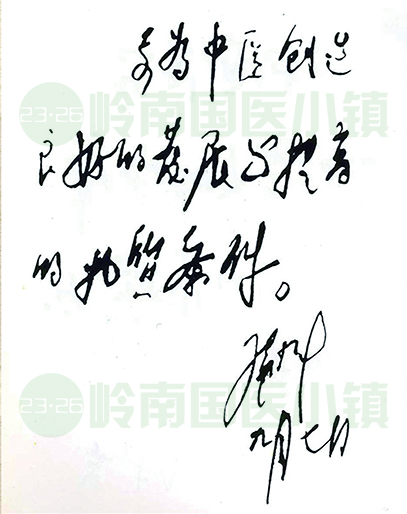 要为中医创造
23·26 岭南国医小镇
良好的发展与提高
的物质条件。
23·26 岭南国医小镇
九月七日